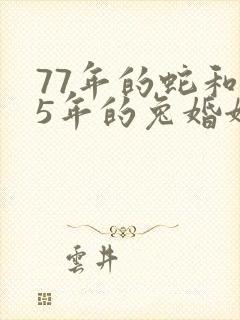 77年的蛇和
5年的兔婚
雲井